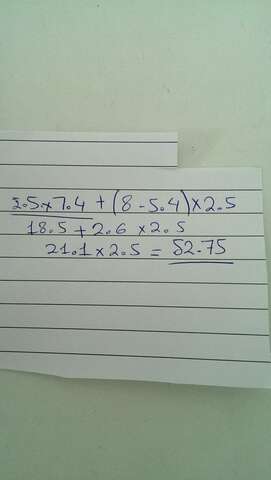 2.5×7.4 + (8-5.4)×2.5
18.5 + 2.6 ×2.5
21.1×2.5 = 52.75